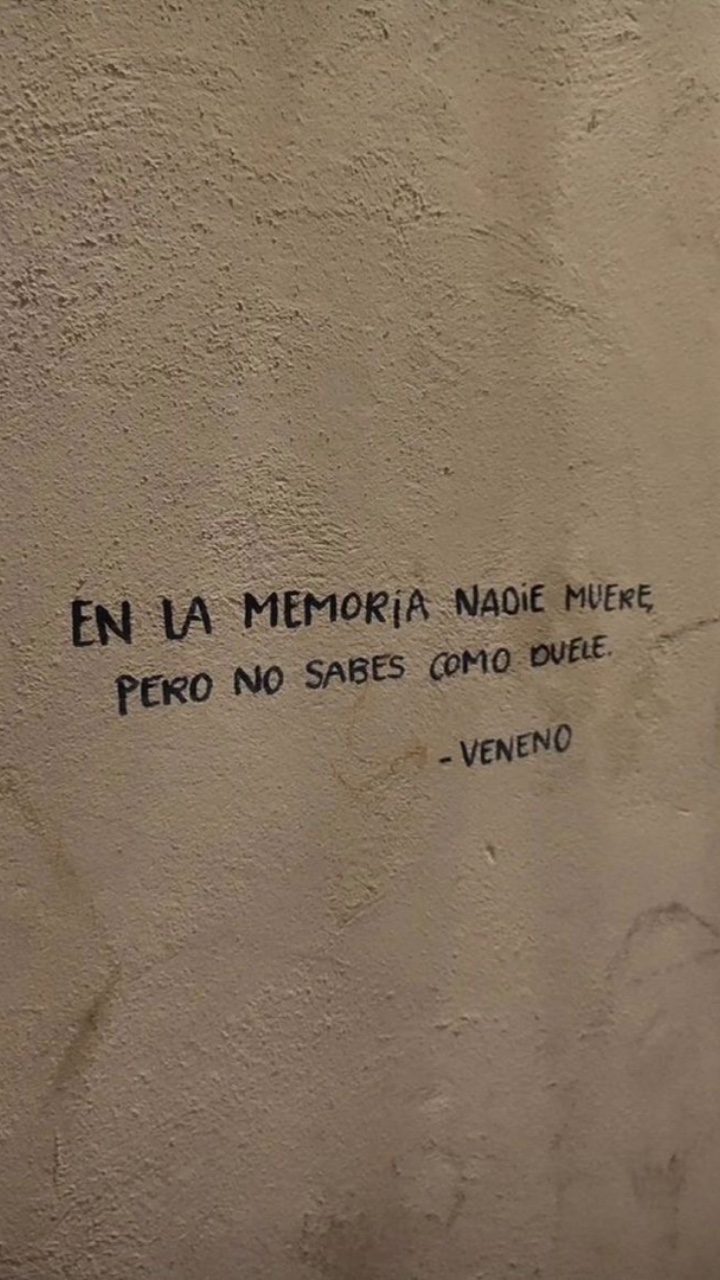 EN LA MEMORiA NADiE MUERE,
PERO NO SABES COMO DUELE.
- VENENO